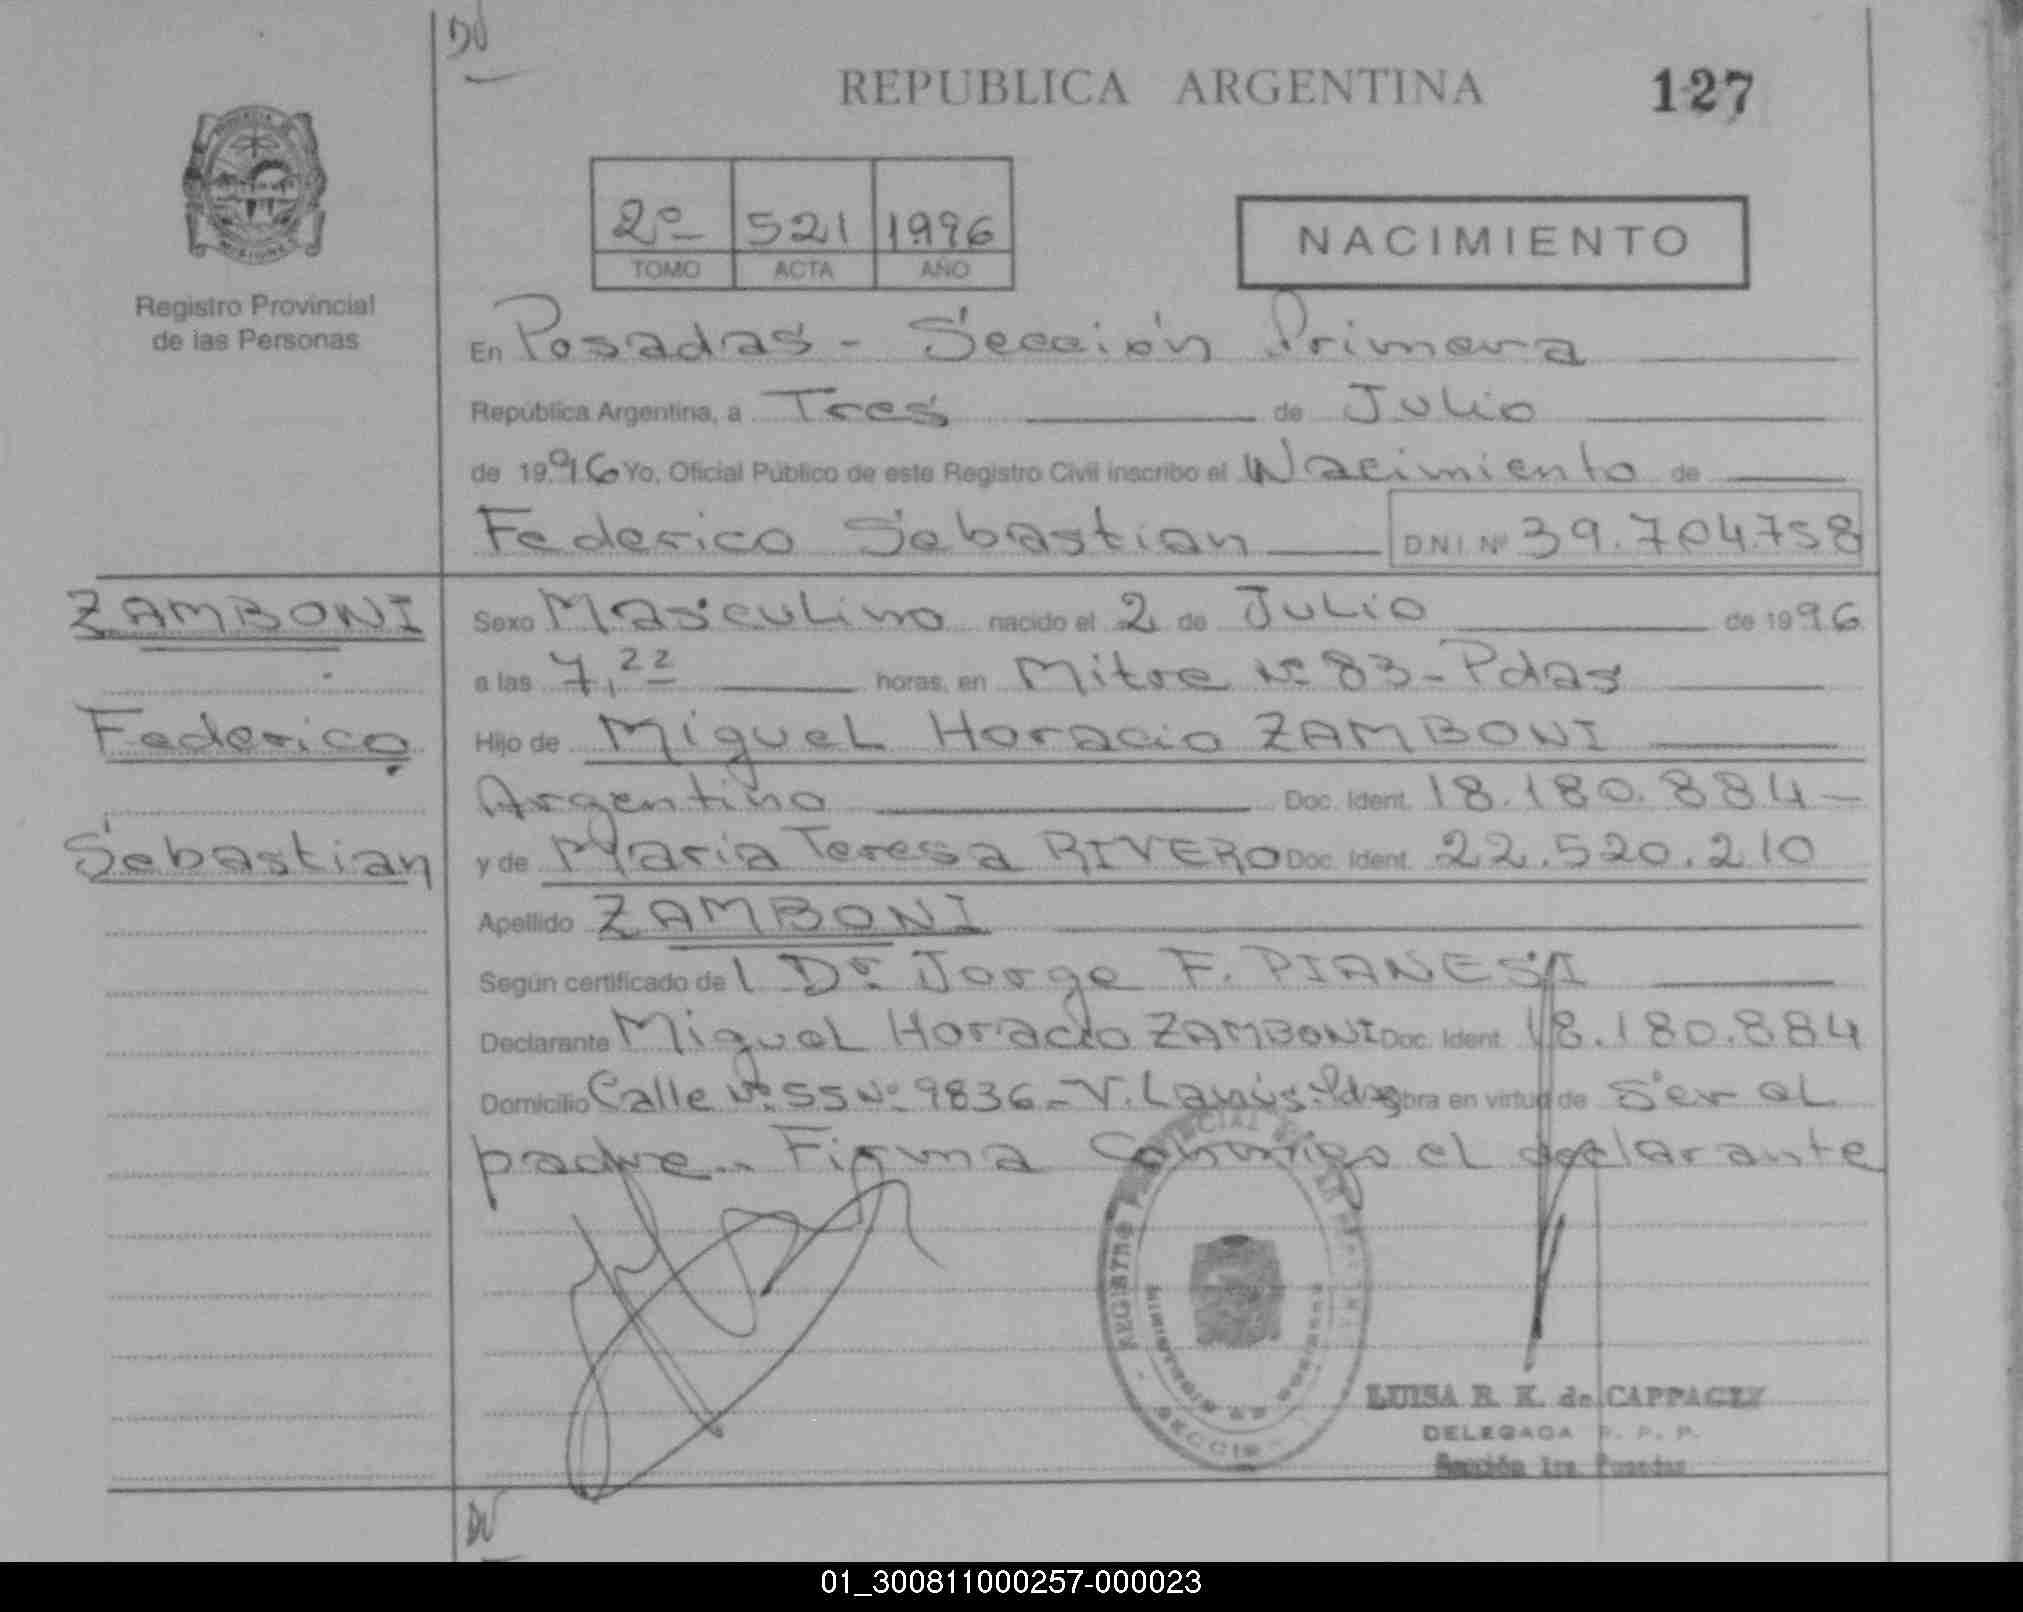 DV
REPUBLICA ARGENTINA 127
2º 521 1996
TOMO ACTA AÑO
NACIMIENTO
Registro Provincial
de las Personas
En Posadas - Sección Primera
República Argentina, a Tres de Julio
de 1996 Yo, Oficial Público de este Registro Civil inscribo el Nacimiento de
Federico Sebastian D.N.I. Nº 39.704.758
ZAMBONI
Federico
Sebastian
Sexo Masculino nacido el 2 de Julio de 1996
a las 7,22 horas, en Mitre Nº 83 - Pdas
Hijo de Miguel Horacio ZAMBONI
Argentino Doc. Ident. 18.180.884 -
y de Maria Teresa RIVERO Doc. Ident. 22.520.210
Apellido ZAMBONI
Según certificado de l Dr. Jorge F. PIANESI
Declarante Miguel Horacio ZAMBONI Doc. Ident. 18.180.884
Domicilio Calle Nº 55 Nº 9836 - V. Lanús - Pdas obra en virtud de ser el
padre.. Firma conmigo el declarante
REGISTRO PROVINCIAL DE LAS PERSONAS
MINISTERIO DE GOBIERNO
SECCION
LUISA R. K. de CAPPAGLY
DELEGADA R. P. P.
Sección 1ra. Posadas
DV
01_300811000257-000023